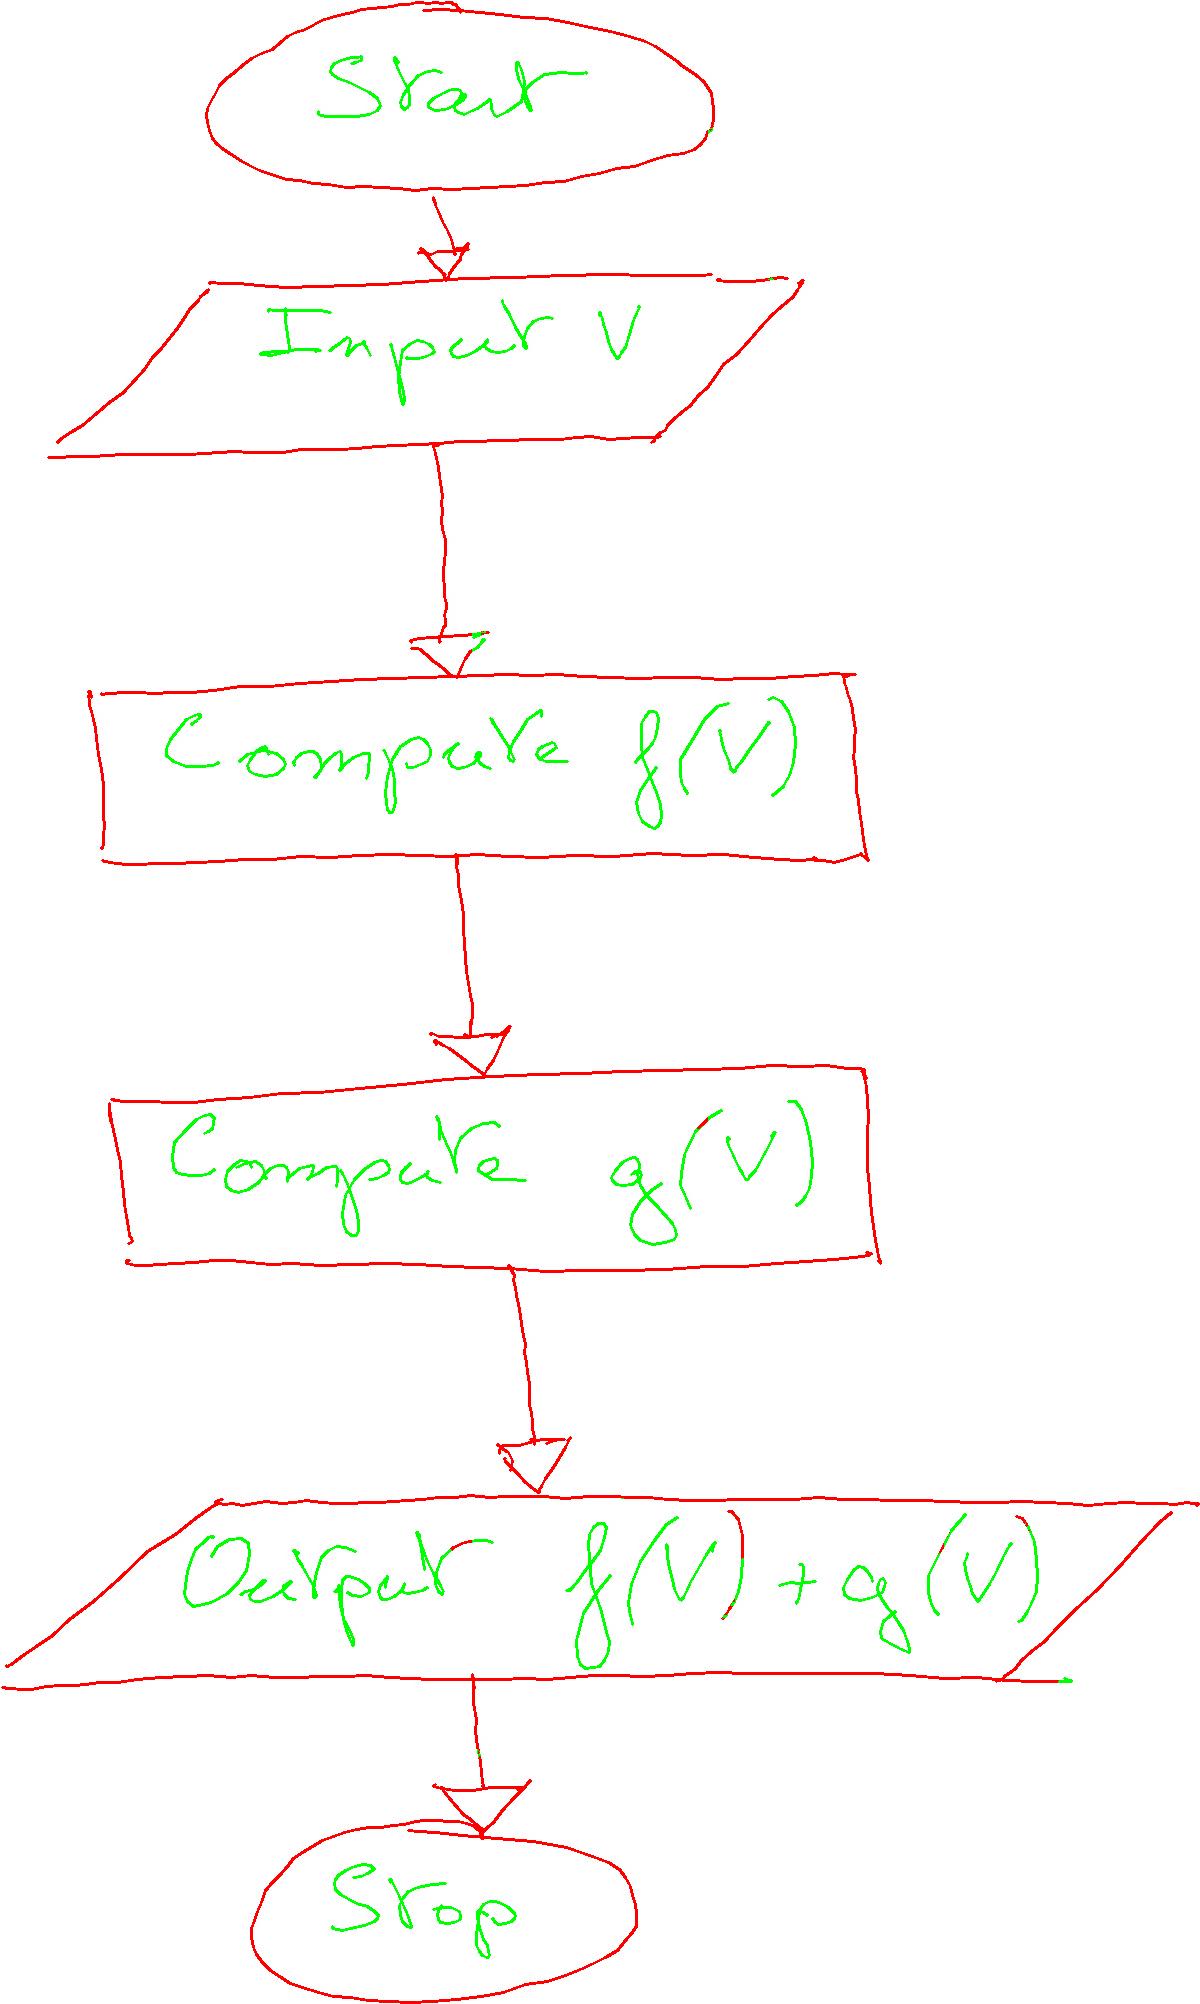 Start
Input V
Compute f(V)
Compute g(V)
Output f(V) + g(V)
Stop